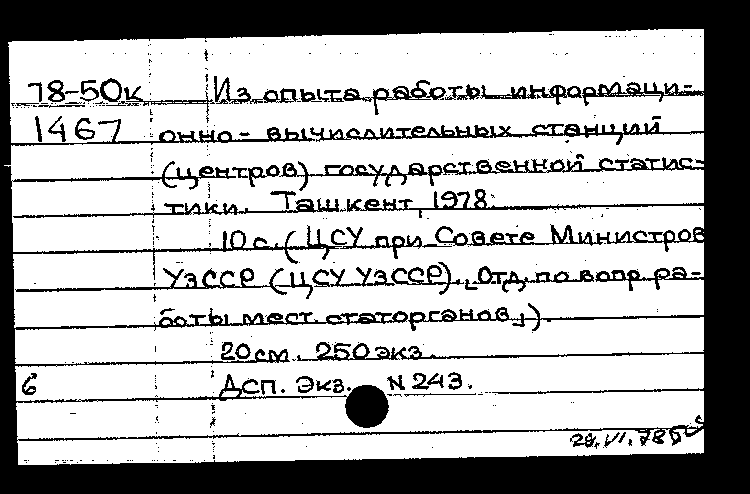 78-50к Из опыта работы информаци-
1467 онно-вычислительных станций
(центров) государственной статис-
тики. Ташкент, 1978.
10 с. (ЦСУ при Совете Министров
УзССР (ЦСУ УзССР). Отд. по вопр. ра-
боты мест. статорганов).
20 см. 250 экз.
6 ДСП. Экз. N 243.
29.VI.78